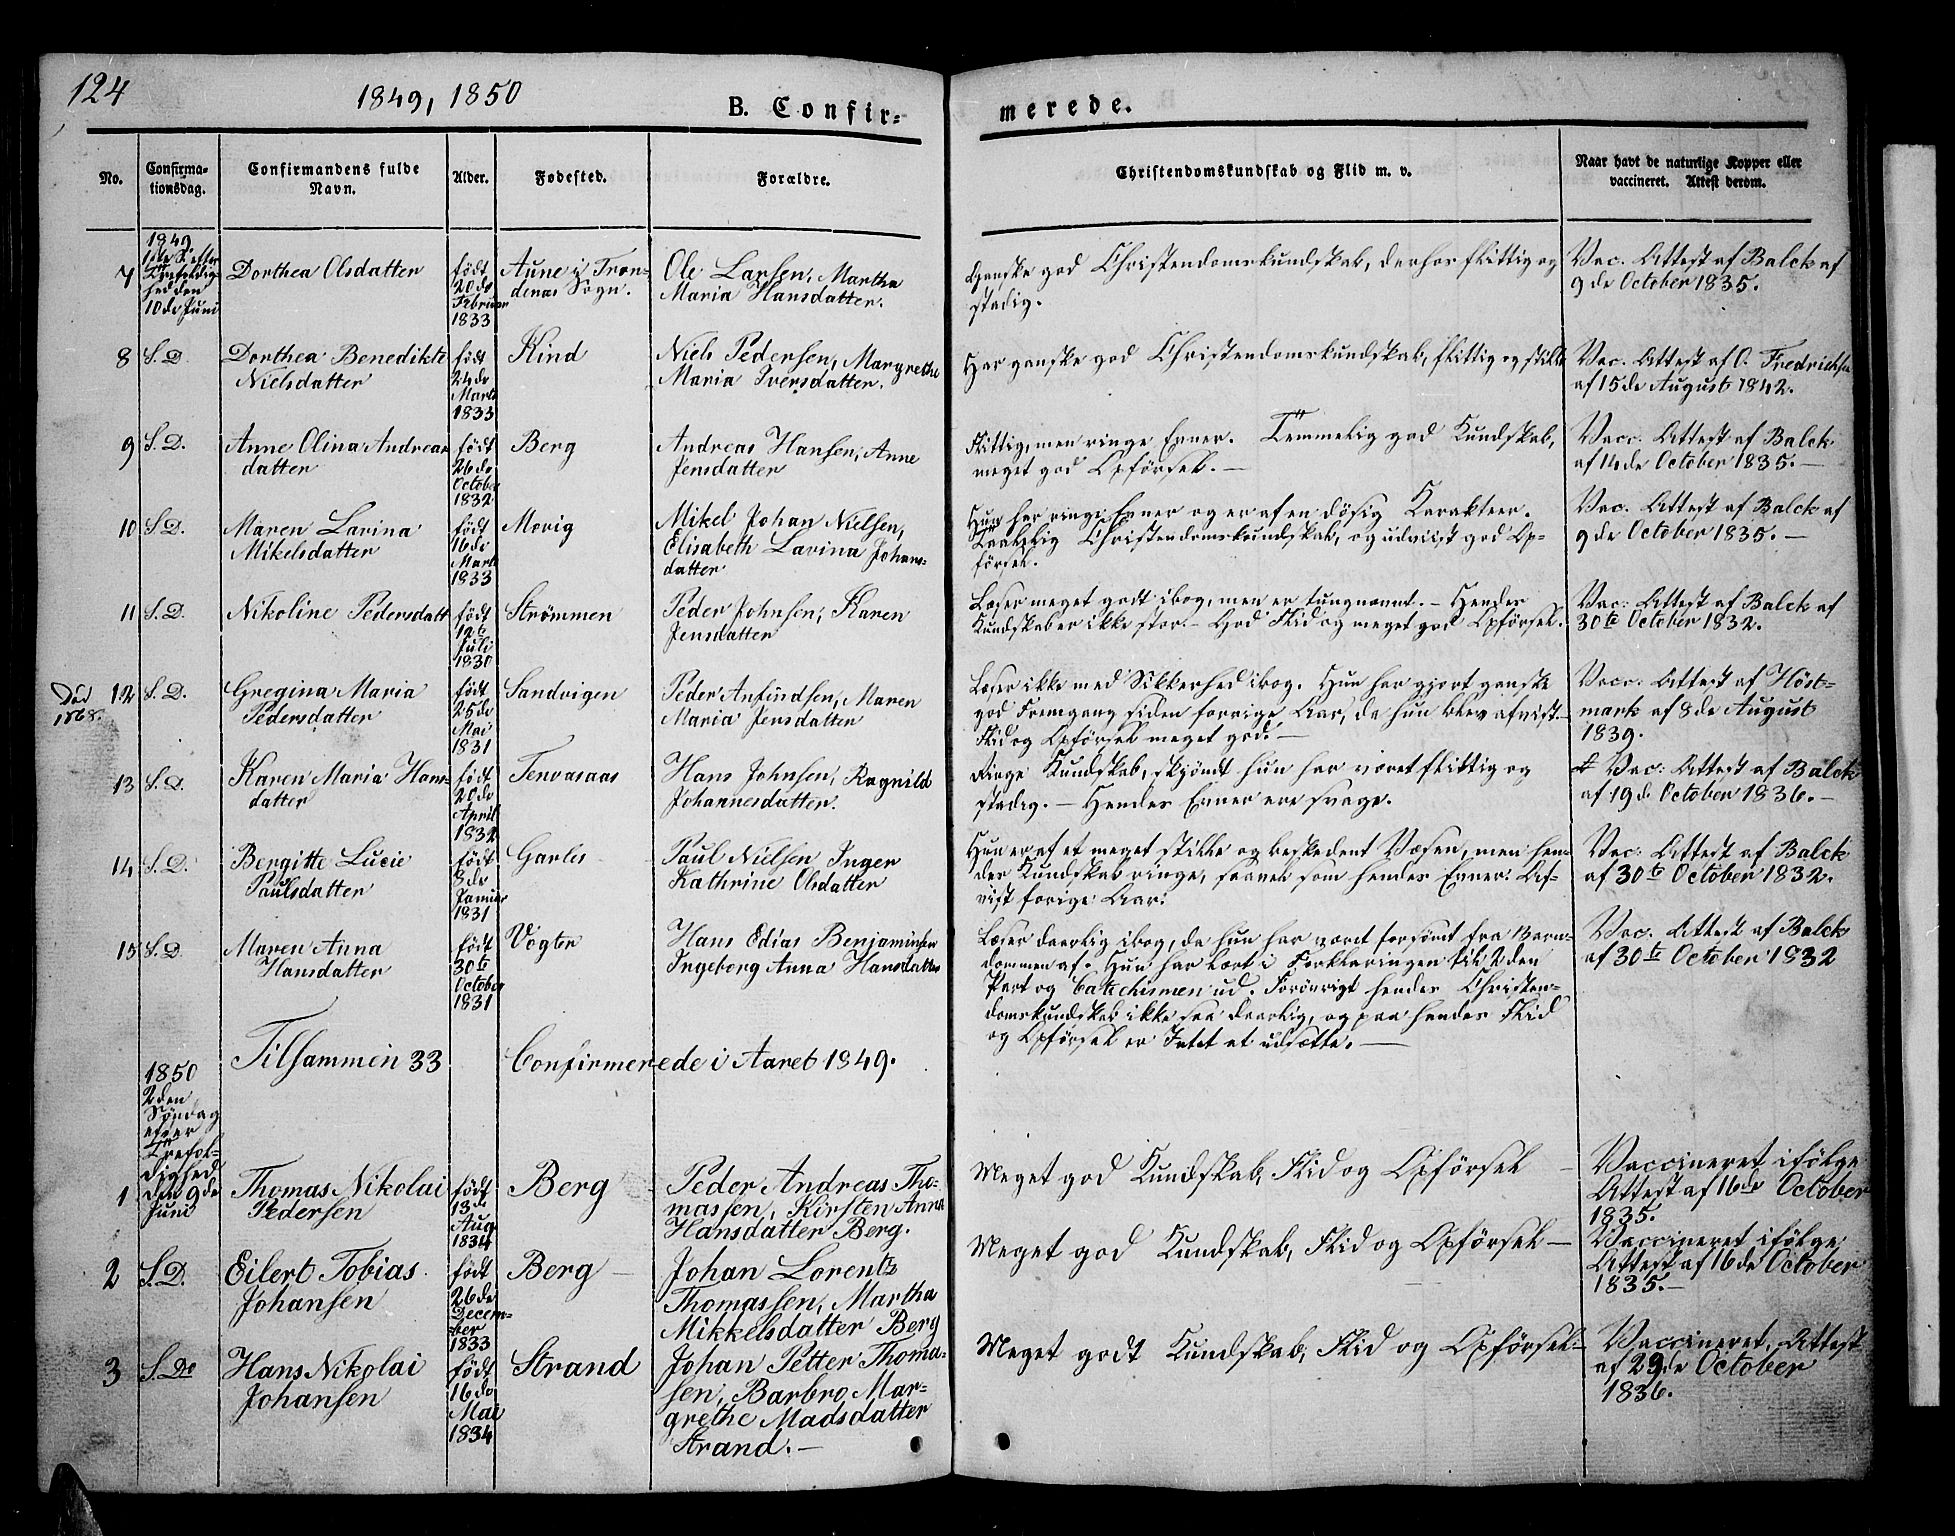 124
1849, 1850
B. Confir-
merede.
No.
Confirma-
tionsdag.
Confirmandens fulde
Navn.
Alder.
Fødested.
Forældre.
Christendomskundskab og Flid m. v.
Naar havt de naturlige Kopper eller
vaccineret. Attest derom.
1849
1ste S. efter
Trefoldig-
hed den
10de Juni
7
Dorthea Olsdatter
født
20de
Februar
1833
Aune i Tron-
denas Sogn.
Ole Larsen, Martha
Maria Hansdatter.
Ganske god Christendomskundskab, derhos flittig og
stadig.
Vac. Attest af Balck af
9de October 1835.
8
S. D.
Dorthea Benedikte
Nielsdatter
født
24de
Marts
1833
Kind
Niels Pedersen, Margrethe
Maria Iversdatter.
Har ganske god Christendomskundskab, flittig og stille
Vac. Attest af O. Fredrichsen
af 15de August 1842.
9
S. D.
Anne Olina Andreas
datter
født
26de
October
1832
Berg
Andreas Hansen, Anne
Jensdatter
Flittig, men ringe Evner. Temmelig god Kundskab,
meget god Opførsel. —
Vacc. Attest af Balck
af 14de October 1835. —
10
S. D.
Maren Lavina
Mikelsdatter
født
16de
Marts
1833
Movig
Mikel Johan Nielsen,
Elisabeth Lavina Johans-
datter
Hun har ringe Evner og er af en døsig Karakteer.
Taalelig Christendomskundskab, og udviist god Op-
førsel.
Vac. Attest af Balck af
9de October 1835. —
11
S. D.
Nikoline Pedersdatt
født
12te
Juli
1830
Strömmen
Peder Johnsen, Karen
Jensdatter
Læser meget godt i bog, men er tungnemt. — Hendes
Kundskab er ikke stor. — God Flid og meget god Opførsel.
Vac: Attest af Balck af
30te October 1832.
Død
1868.
12
S. D.
Gregina Maria
Pedersdatter
født
25de
Mai
1831
Sandvigen
Peder Anfindsen, Maren
Maria Jensdatter
Læser ikke med Sikkerhed i bog. Hun har gjort ganske
god Fremgang siden forrige Aar, da hun blev afvist. —
Flid og Opførsel meget god. —
Vacc. Attest af Höst-
mark af 8de August
1839.
13
S. D.
Karen Maria Hans-
datter
født
20de
April
1832
Tenvasaas
Hans Johnsen, Ragnild
Johannesdatter.
Ringe Kundskab, skjøndt hun har været flittig og
stadig. — Hendes Evner ere svage.
Vac: Attest af Balck
af 19de October 1836. —
14
S. D.
Bergitte Lucie
Paulsdatter
født
8de
Januar
1831
Garles
Paul Nielsen Inger
Kathrine Olsdatter
Hun er af et meget stille og beskedent Væsen, men hen-
des Kundskab ringe, saavel som hendes Evner. Af-
vist forige Aar.
Vac: Attest af Balck
af 30te October 1832.
15
S. D.
Maren Anna
Hansdatter
født
30te
October
1831
Vogter
Hans Edias Benjaminsen
Ingeborg Anna Hansdatter
Læser daarlig i bog, da hun har været forsömt fra Barn-
dommen af. Hun har lært i Forklaringen til 2den
Part og Catechismen ud. Forøvrigt hendes Christen-
domskundskab ikke saa daarlig, og paa hendes Flid
og Opførsel er Intet at udsætte. —
Vac. Attest af Balck
af 30te October 1832
Tilsammen 33 Confirmerede i Aaret 1849.
1850
2den
Søndag
efter
Trefol-
dighed
den 9de
Juni
1
Thomas Nikolai
Pedersen
født
13de
Aug
1834
Berg
Peder Andreas Tho-
massen, Kirsten Anna
Hansdatter Berg.
Meget god Kundskab, Flid og Opførsel —
Vaccineret ifølge
Attest af 16de October
1835.
2
S. D.
Eilert Tobias
Johansen
født
26de
Decem-
ber
1833
Berg —
Johan Lorentz
Thomassen, Martha
Mikkelsdatter Berg
Meget god Kundskab, Flid og Opførsel —
Vaccineret ifølge
Attest af 16de October
1835. —
3
S. De
Hans Nikolai
Johansen
født
16de
Mai
1834
Strand
Johan Petter Thoma-
sen, Barbro Mar-
grethe Madsdatter
Strand. —
Meget godt Kundskab, Flid og Opførsel —
Vaccineret, Attest
af 29de October
1836.